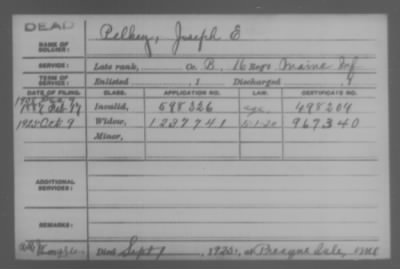 DEAD
NAME OF SOLDIER: Pelkey, Joseph E
SERVICE: Late rank, Co. B, 16 Reg't Maine Inf
TERM OF SERVICE: Enlisted , 1 Discharged , 1
DATE OF FILING. CLASS. APPLICATION NO. LAW. CERTIFICATE NO.
Invalid, 598326 498204
1925 Oct 9 Widow, 1237741 5-1-20 967340
Minor,
ADDITIONAL SERVICES:
REMARKS:
Died Sept 1, 1925, at Presque Isle, Me